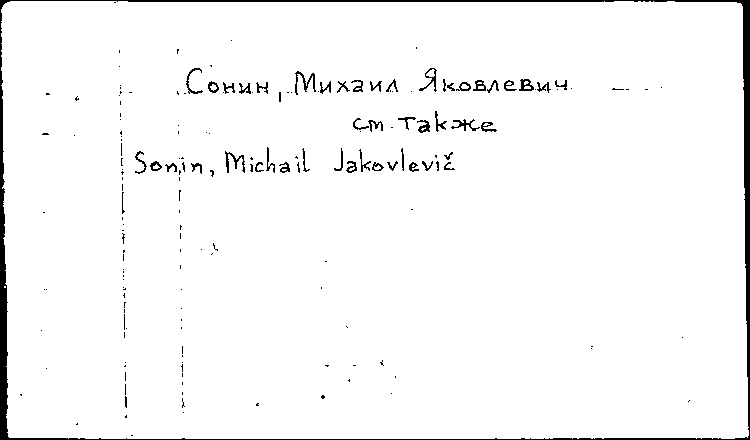 Сонин, Михаил Яковлевич
см. также
Sonin, Michail Jakovlevič